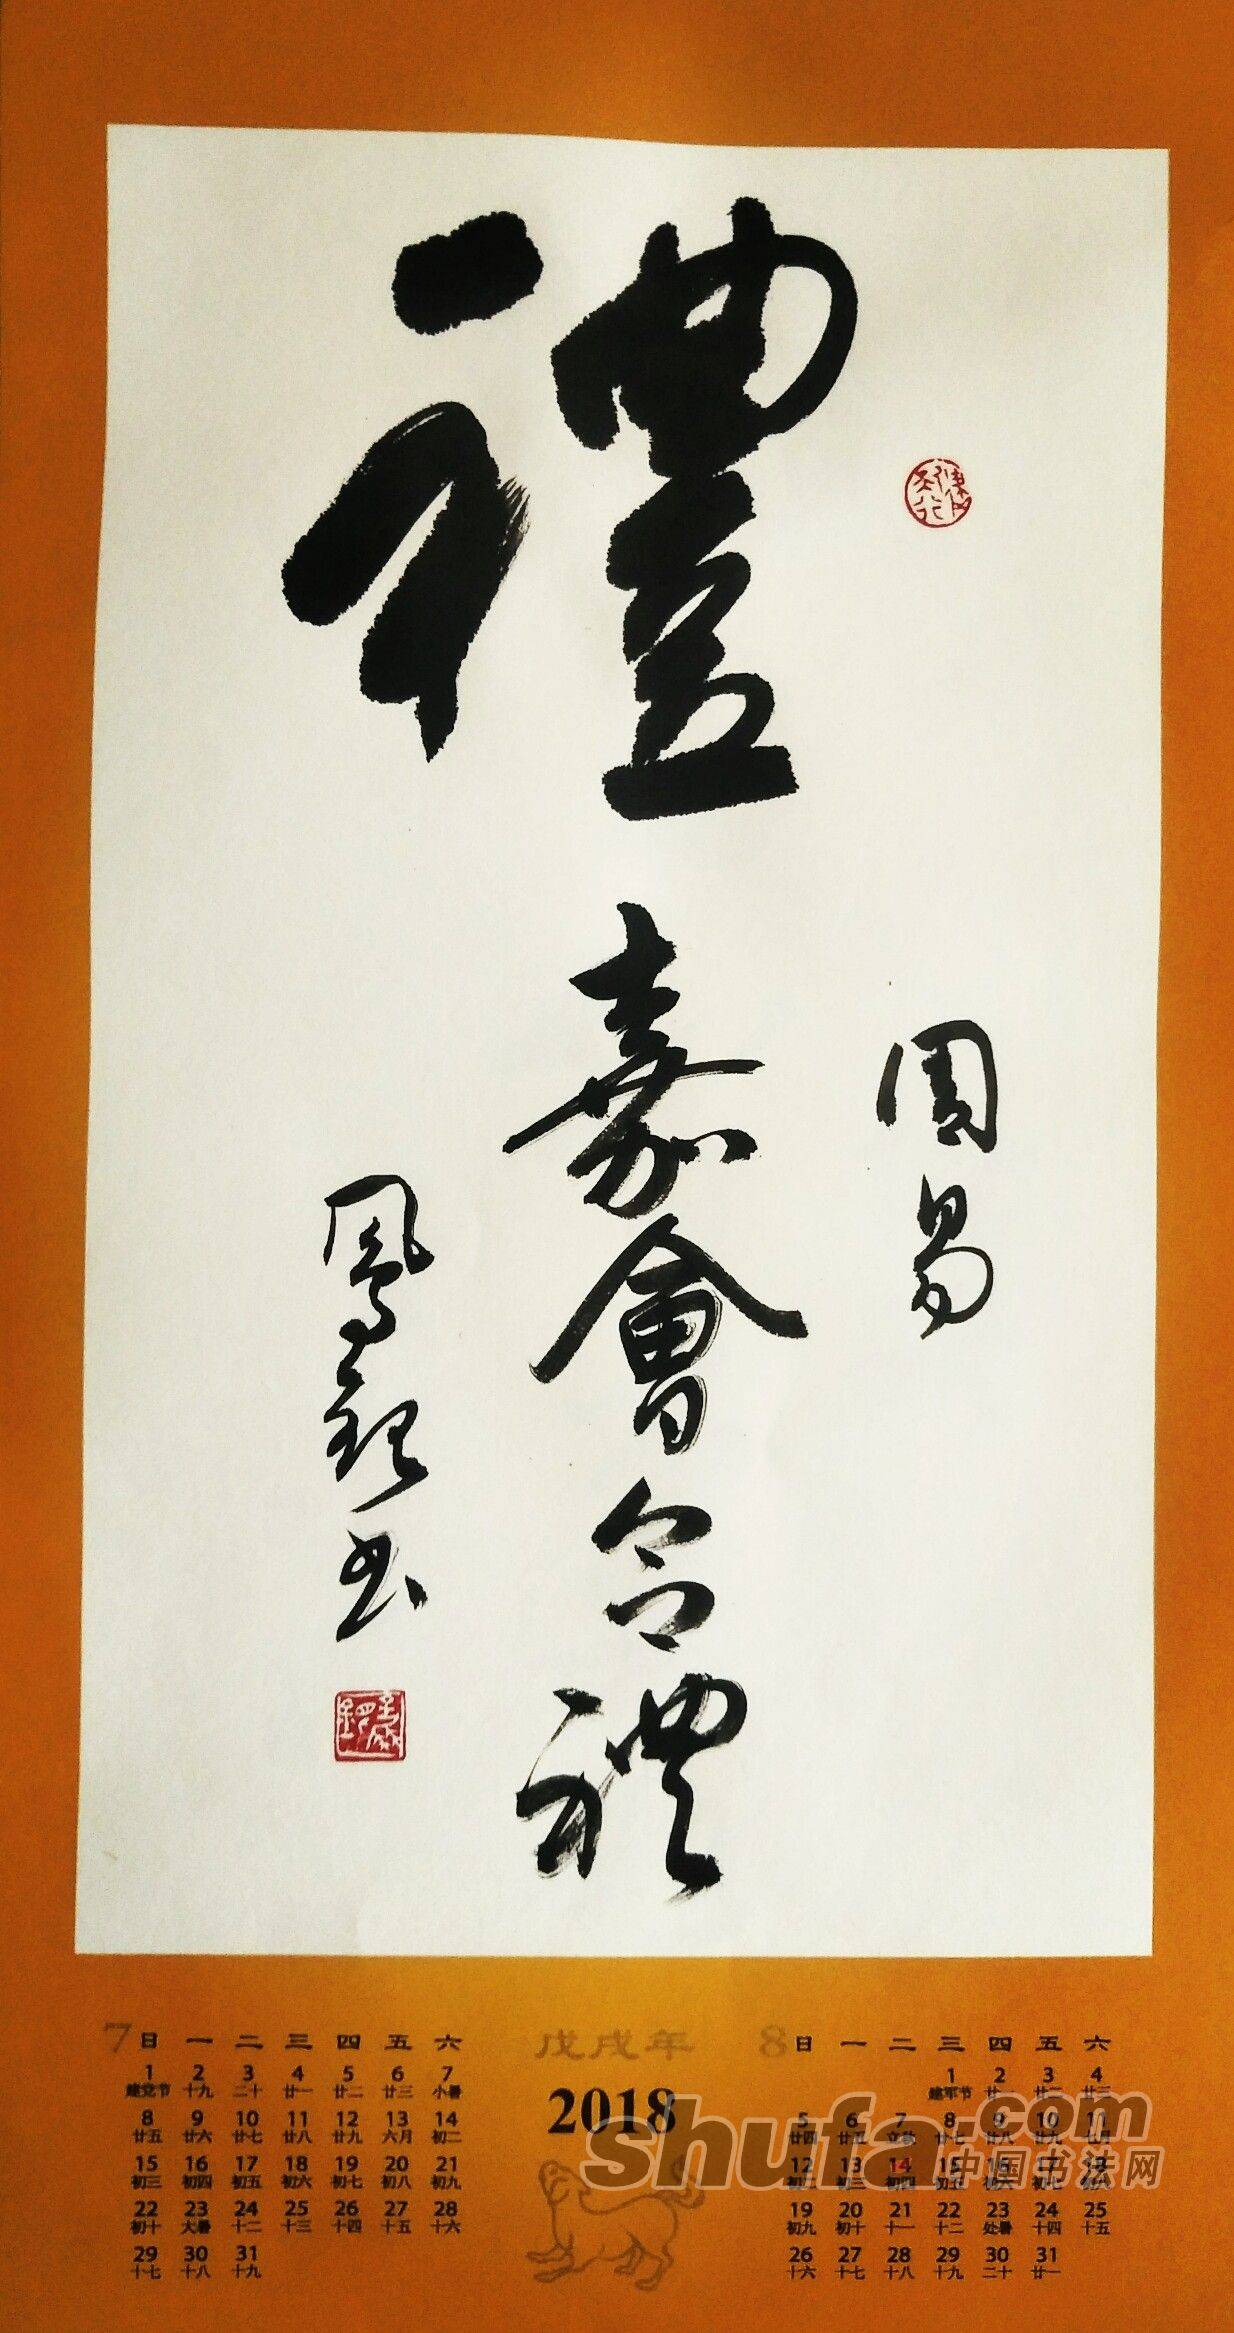 禮
周易
嘉會合禮
鳳
书
7 日 一 二 三 四 五 六
1 2 3 4 5 6 7
建党节 十九 二十 廿一 廿二 廿三 小暑
8 9 10 11 12 13 14
廿五 廿六 廿七 廿八 廿九 六月 初二
15 16 17 18 19 20 21
初三 初四 初五 初六 初七 初八 初九
22 23 24 25 26 27 28
初十 大暑 十二 十三 十四 十五 十六
29 30 31
十七 十八 十九
戊戌年
2018
8 日 一 二 三 四 五 六
1 2 3 4
建军节 廿一 廿二 廿三
5 6 7 8 9 10 11
廿四 廿五 立秋 廿七 廿八 廿九 七月
12 13 14 15 16 17 18
初二 初三 初四 初五 初六 初七 初八
19 20 21 22 23 24 25
初九 初十 十一 十二 处暑 十四 十五
26 27 28 29 30 31
十六 十七 十八 十九 二十 廿一
shufa.com
中国书法网